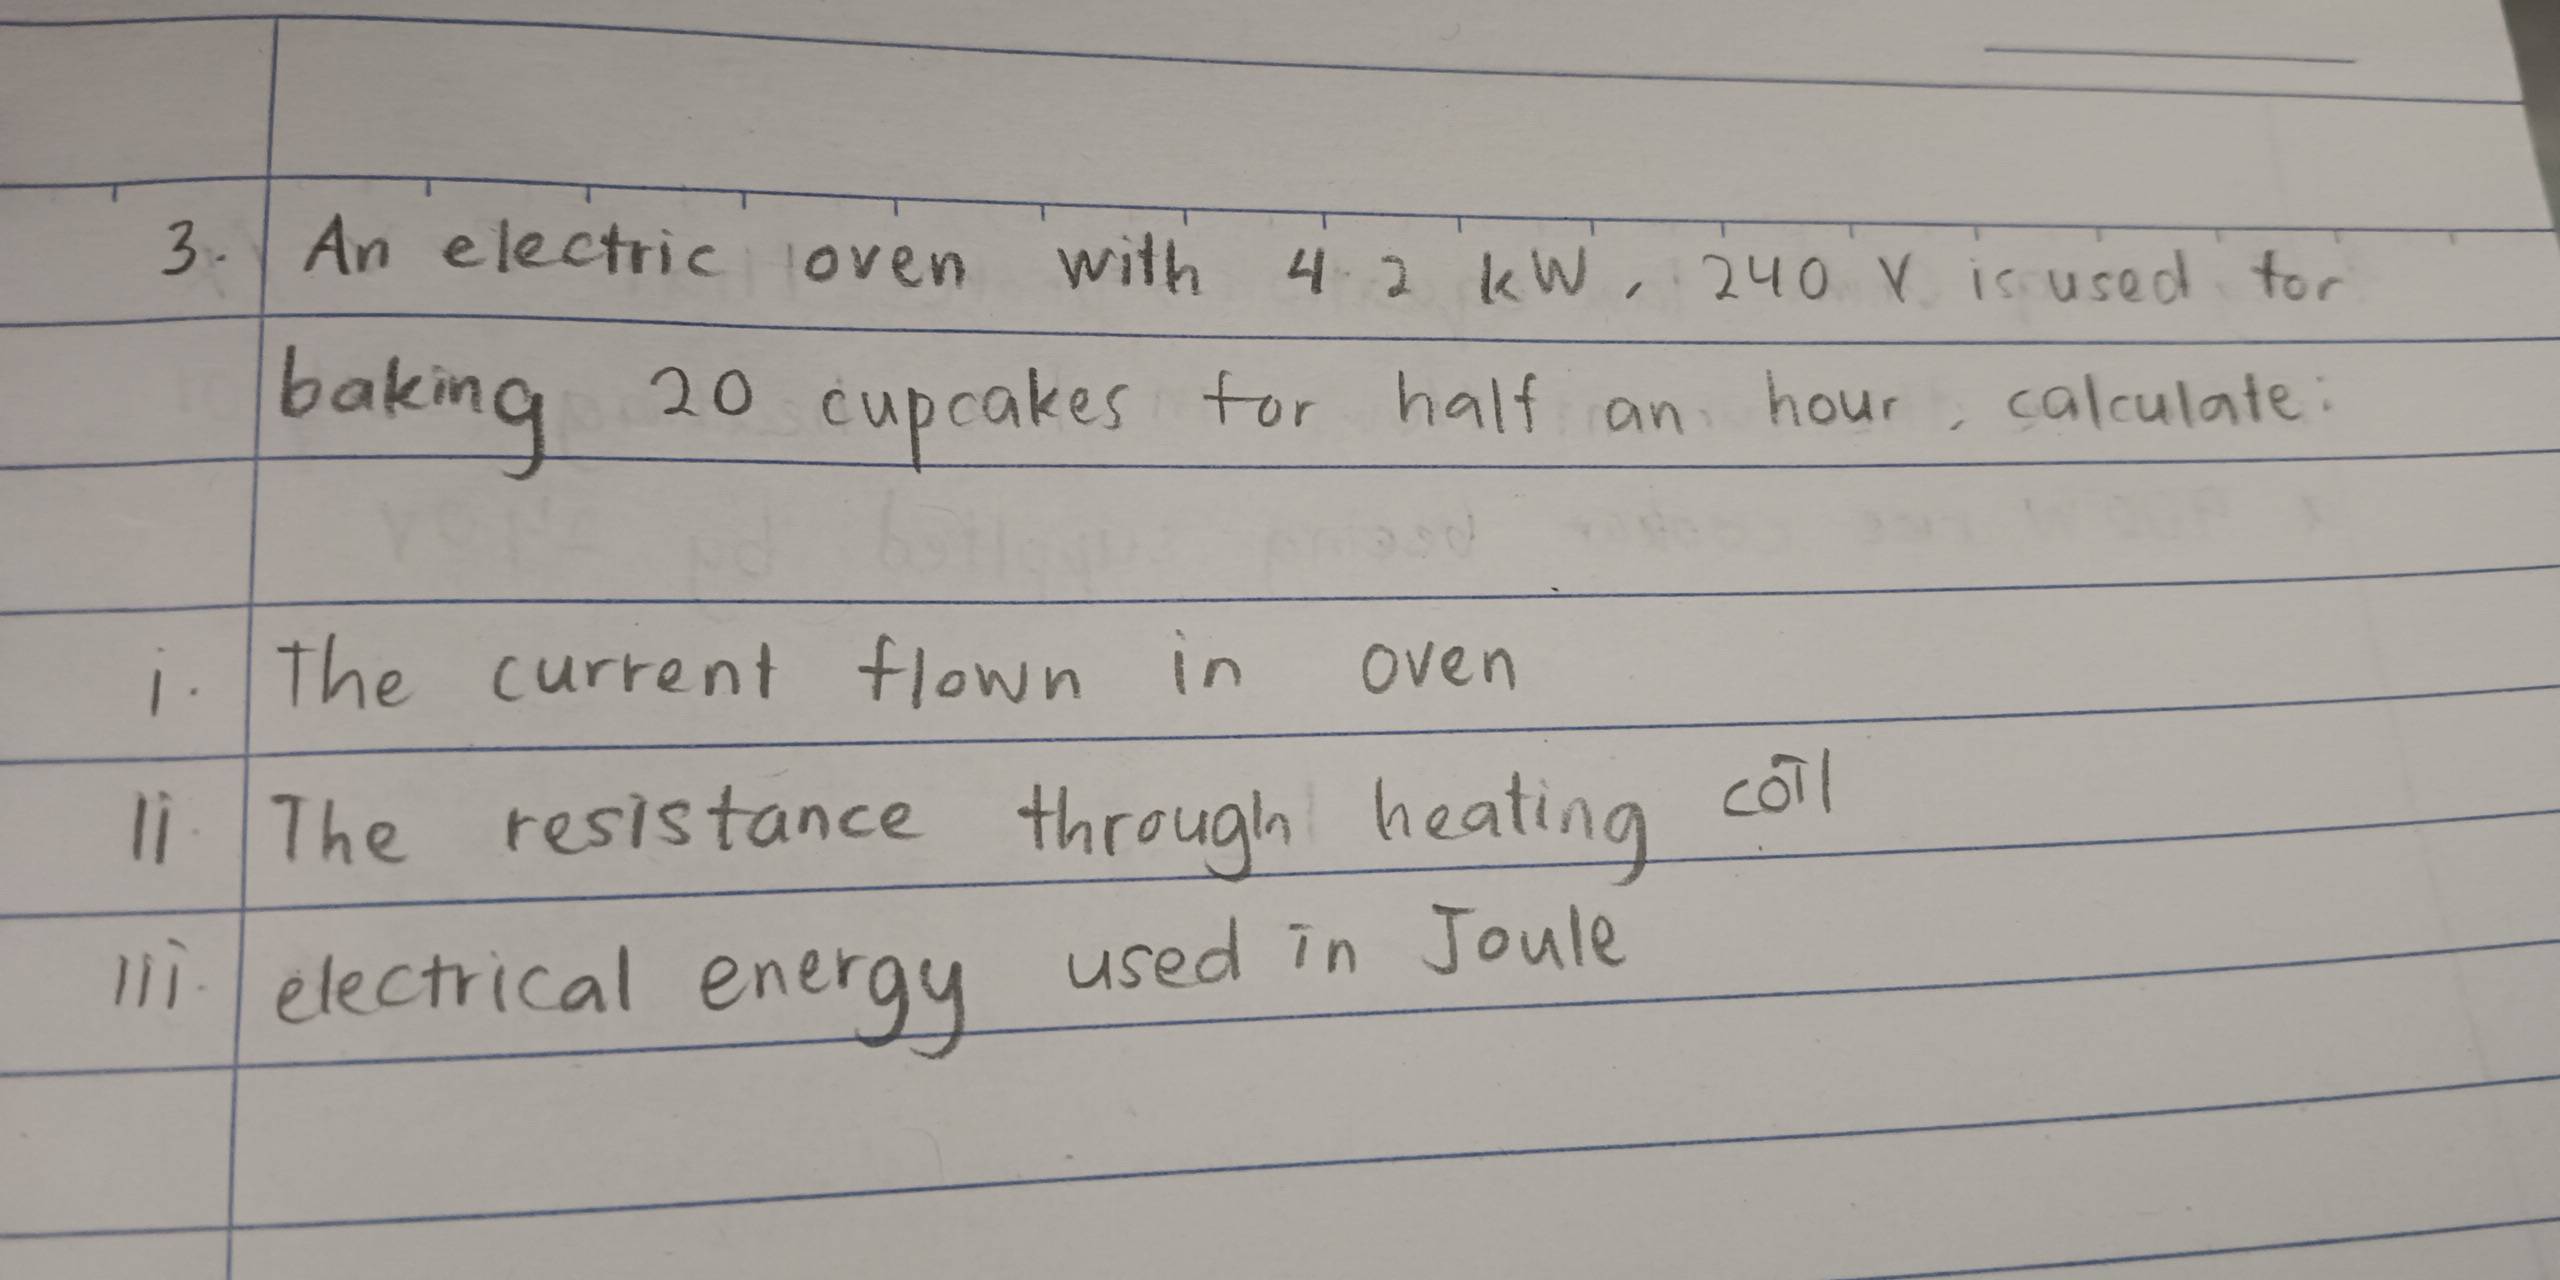 3. An electric oven with 4.2 kW, 240 V is used for
baking 20 cupcakes for half an hour, calculate:
i. The current flown in oven
ii. The resistance through heating coil
iii. electrical energy used in Joule